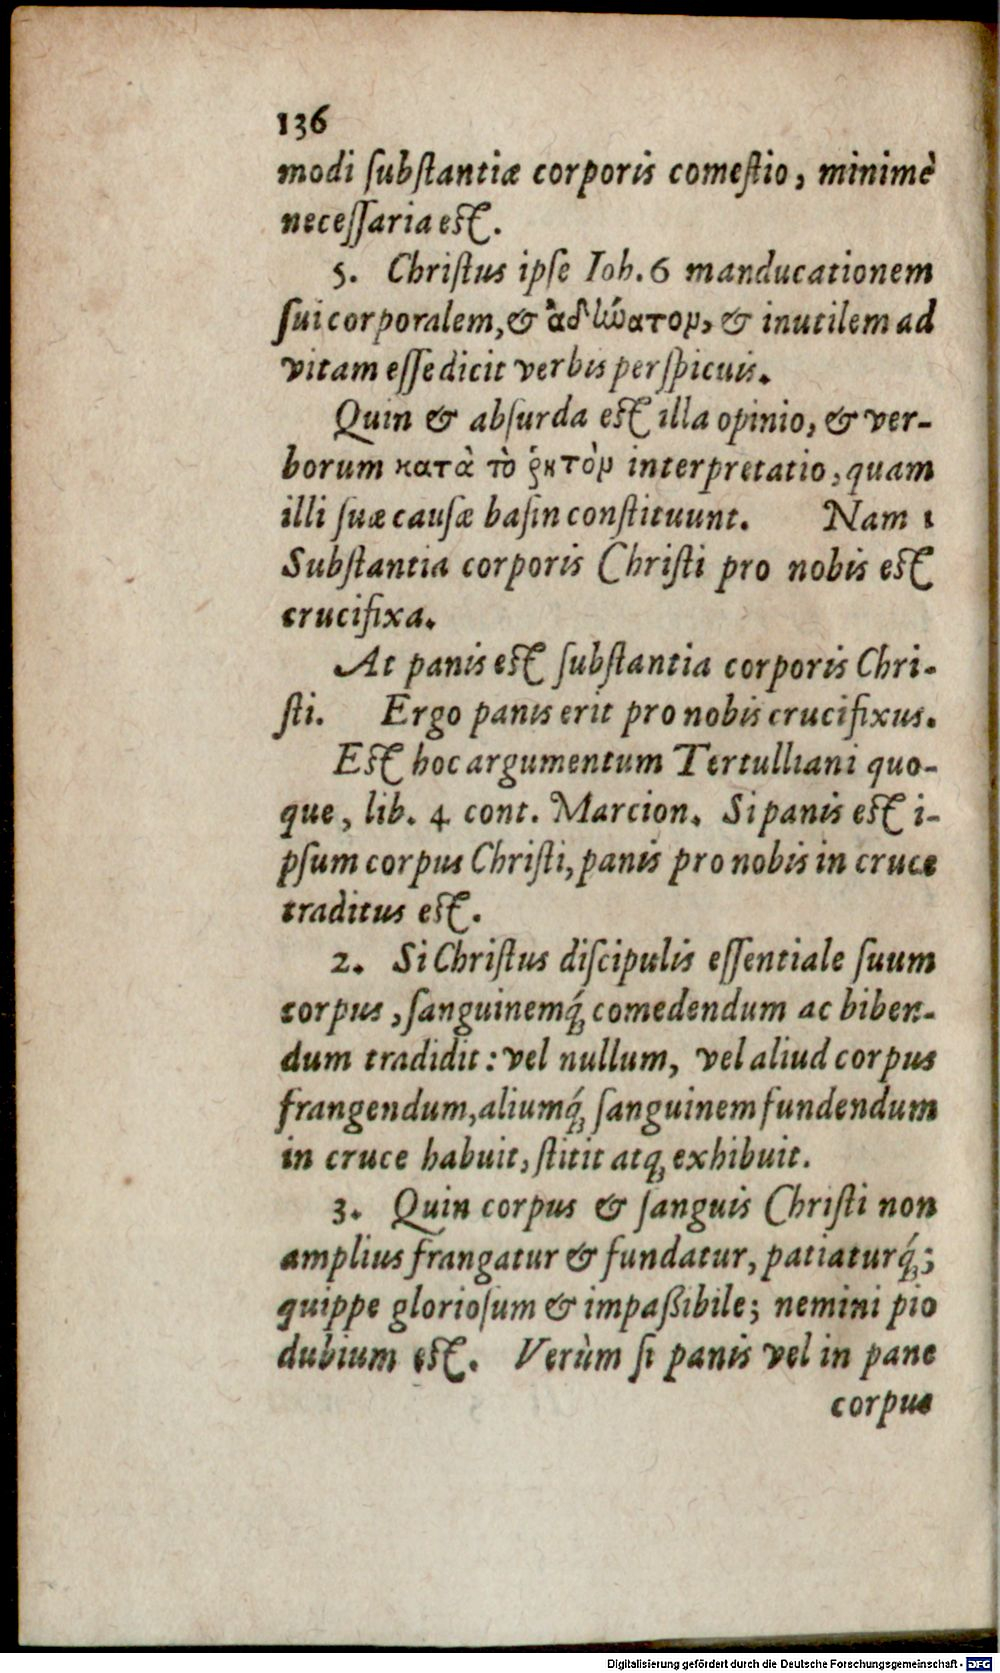 136
modi ſubſtantiæ corporis comeſtio, minimè
neceſſaria eſt.
5. Chriſtus ipſe Ioh. 6 manducationem
ſui corporalem, & ἀδύνατον, & inutilem ad
vitam eſſe dicit verbis perſpicuis.
Quin & abſurda eſt illa opinio, & ver-
borum κατὰ τὸ ῥητὸν interpretatio, quam
illi ſuæ cauſæ baſin conſtituunt. Nam 1
Subſtantia corporis Chriſti pro nobis eſt
crucifixa.
At panis eſt ſubſtantia corporis Chri-
ſti. Ergo panis erit pro nobis crucifixus.
Eſt hoc argumentum Tertulliani quo-
que, lib. 4 cont. Marcion. Si panis eſt i-
pſum corpus Chriſti, panis pro nobis in cruce
traditus eſt.
2. Si Chriſtus diſcipulis eſſentiale ſuum
corpus, ſanguinemq́; comedendum ac biben-
dum tradidit: vel nullum, vel aliud corpus
frangendum, aliumq́; ſanguinem fundendum
in cruce habuit, ſtitit atq; exhibuit.
3. Quin corpus & ſanguis Chriſti non
amplius frangatur & fundatur, patiaturq́;;
quippe glorioſum & impaßibile; nemini pio
dubium eſt. Verùm ſi panis vel in pane
corpus
Digitalisierung gefördert durch die Deutsche Forschungsgemeinschaft - DFG